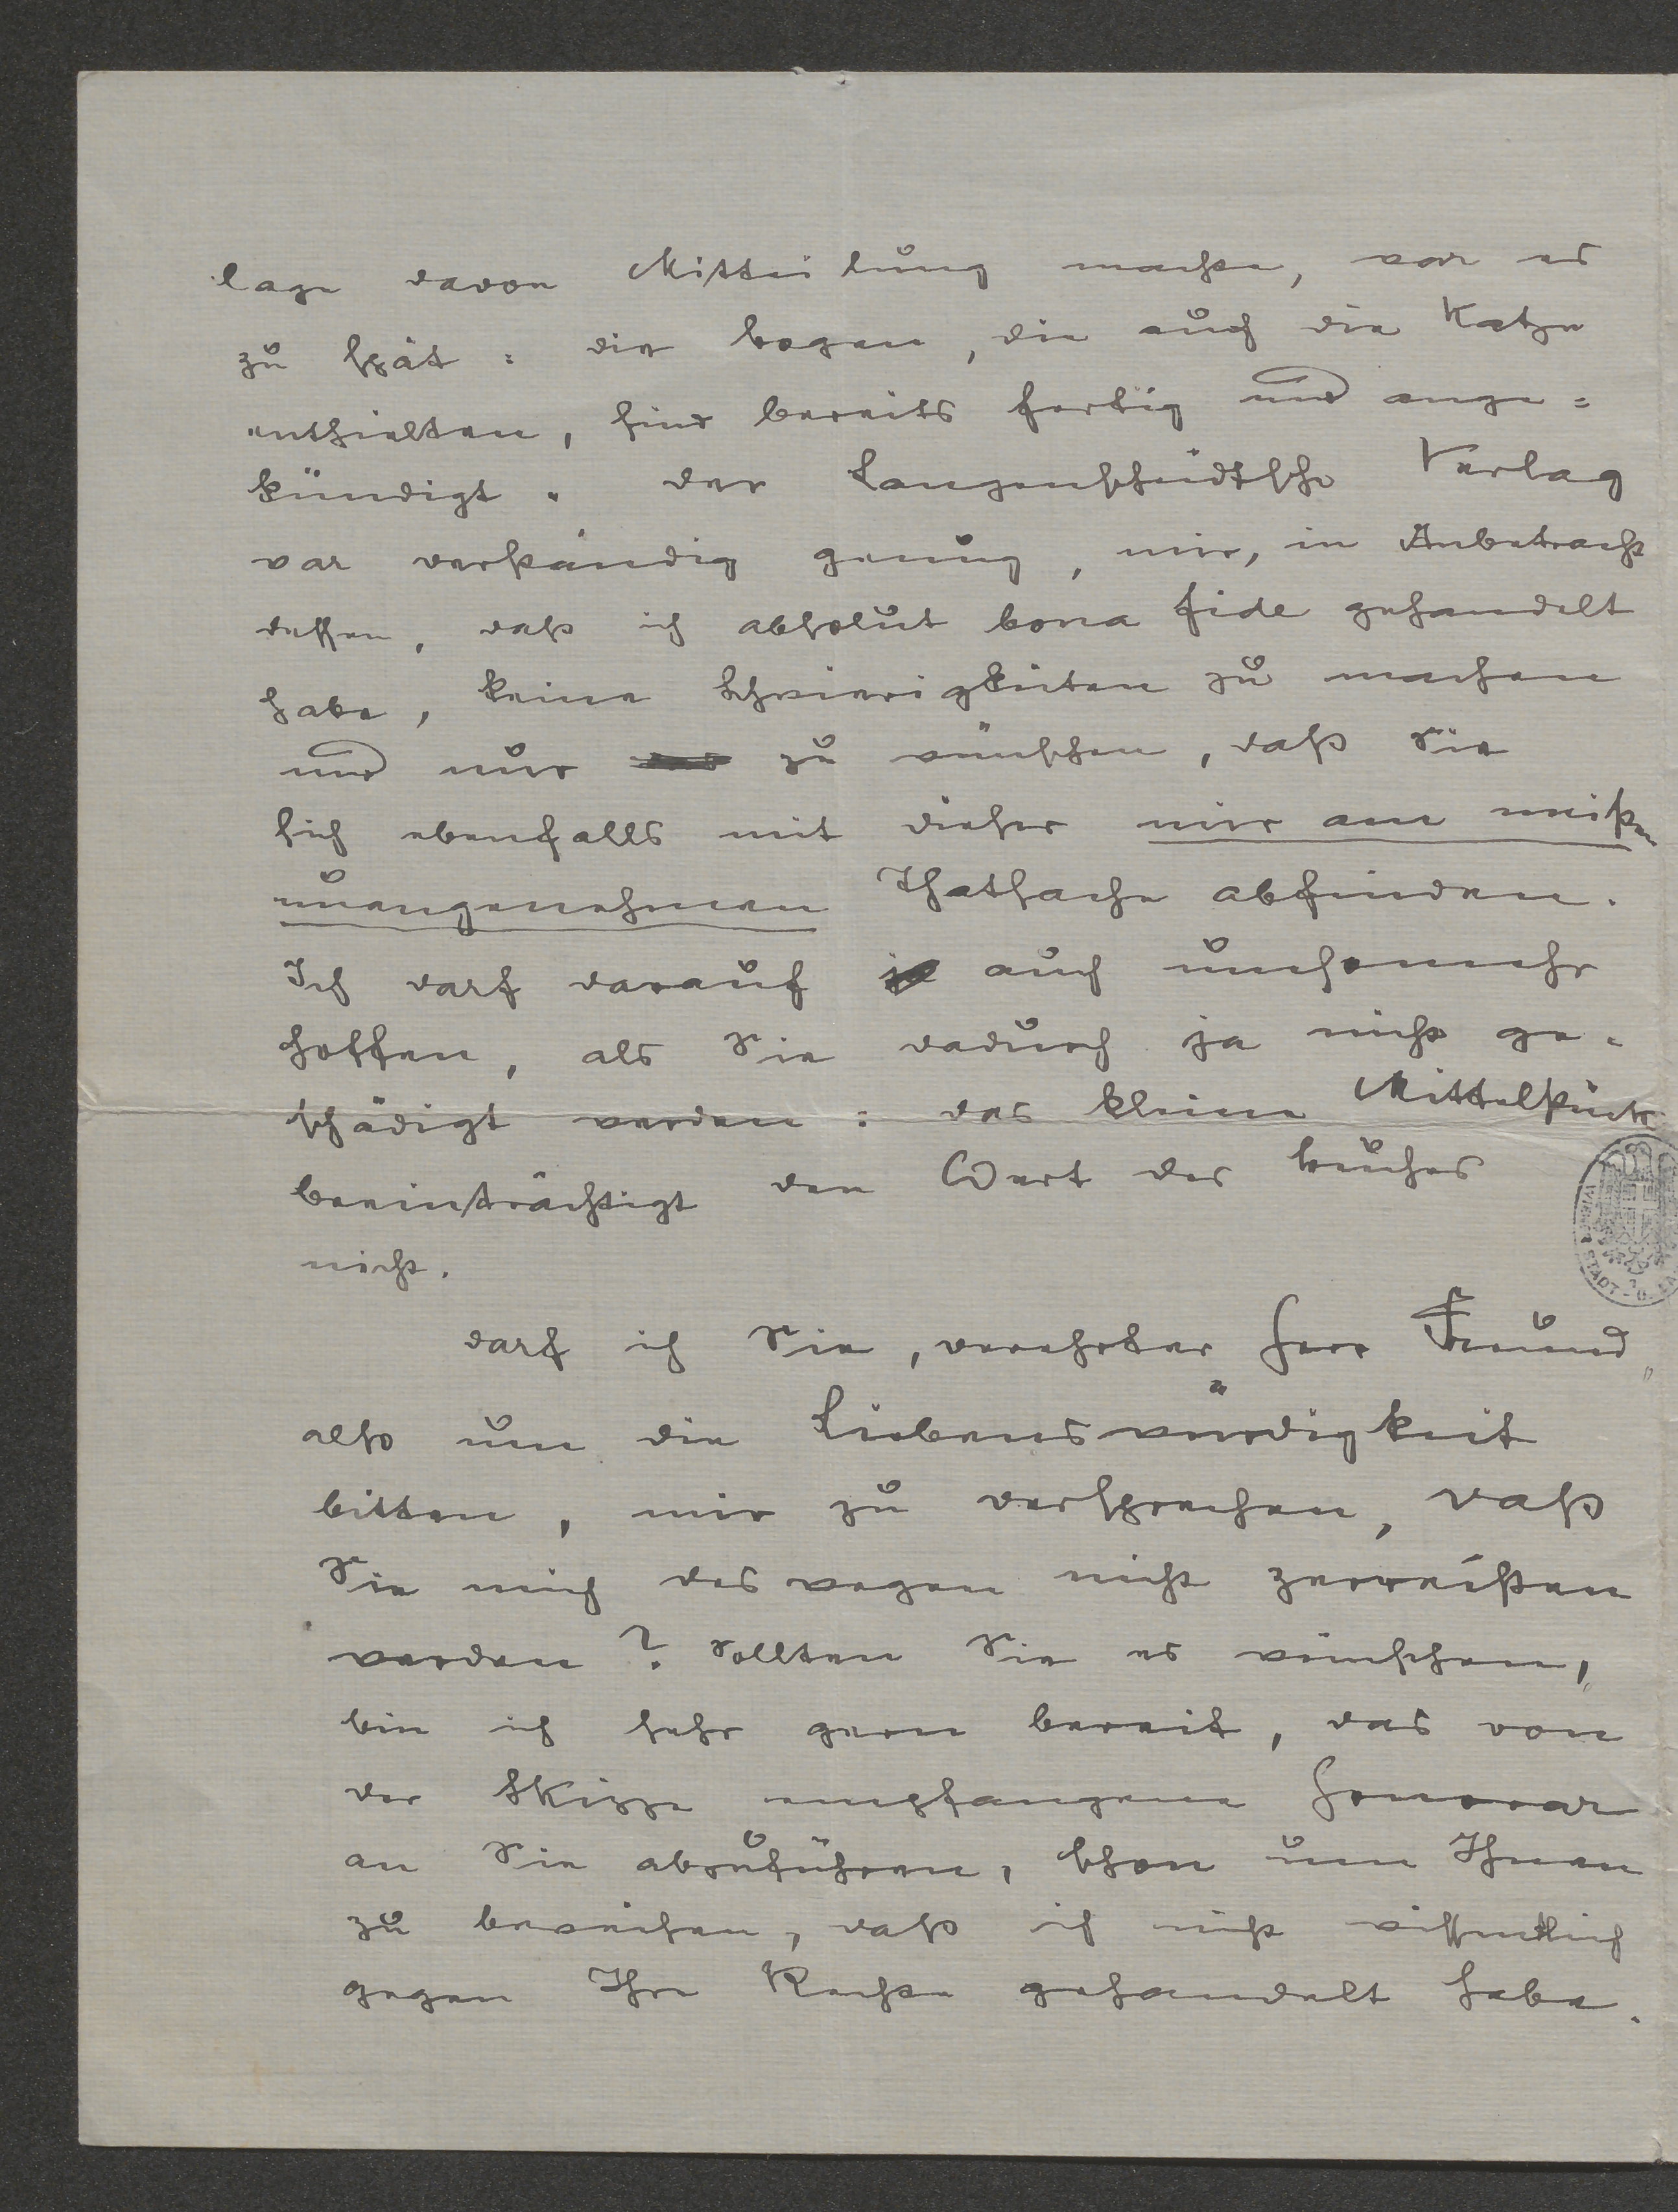 lage davon Mitteilung machte, war es
zu spät: die Bogen, die auch die Katze
enthielten, sind bereits fertig und ange=
kündigt. Der Langenscheidtsche Verlag
war verständig genug, mir, in Anbetracht
dessen, daß ich absolut bona fide gehandelt
habe, keine Schwierigkeiten zu machen
und nur zu wünschen, daß Sie
sich ebenfalls mit dieser mir am meisten
unangenehmen Thatsache abfinden.
Ich darf darauf auch umsomehr
hoffen, als Sie dadurch ja nicht ge=
schädigt werden: das kleine Mittelstück
beeinträchtigt den Wert des Buches
nicht.
Darf ich Sie, verehrter Herr Freund,
also um die Liebenswürdigkeit
bitten, mir zu versprechen, daß
Sie mich deswegen nicht zerreißen
werden? Sollten Sie es wünschen,
bin ich sehr gern bereit, das von
der Skizze empfangene Honorar
an Sie abzuführen, schon um Ihnen
zu beweisen, daß ich nicht wissentlich
gegen Ihre Rechte gehandelt habe.